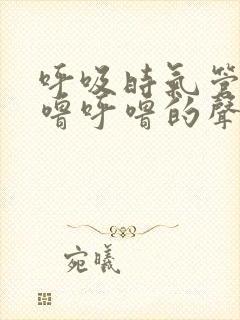 呼吸時氣管
嚕呼嚕的聲
宛曦